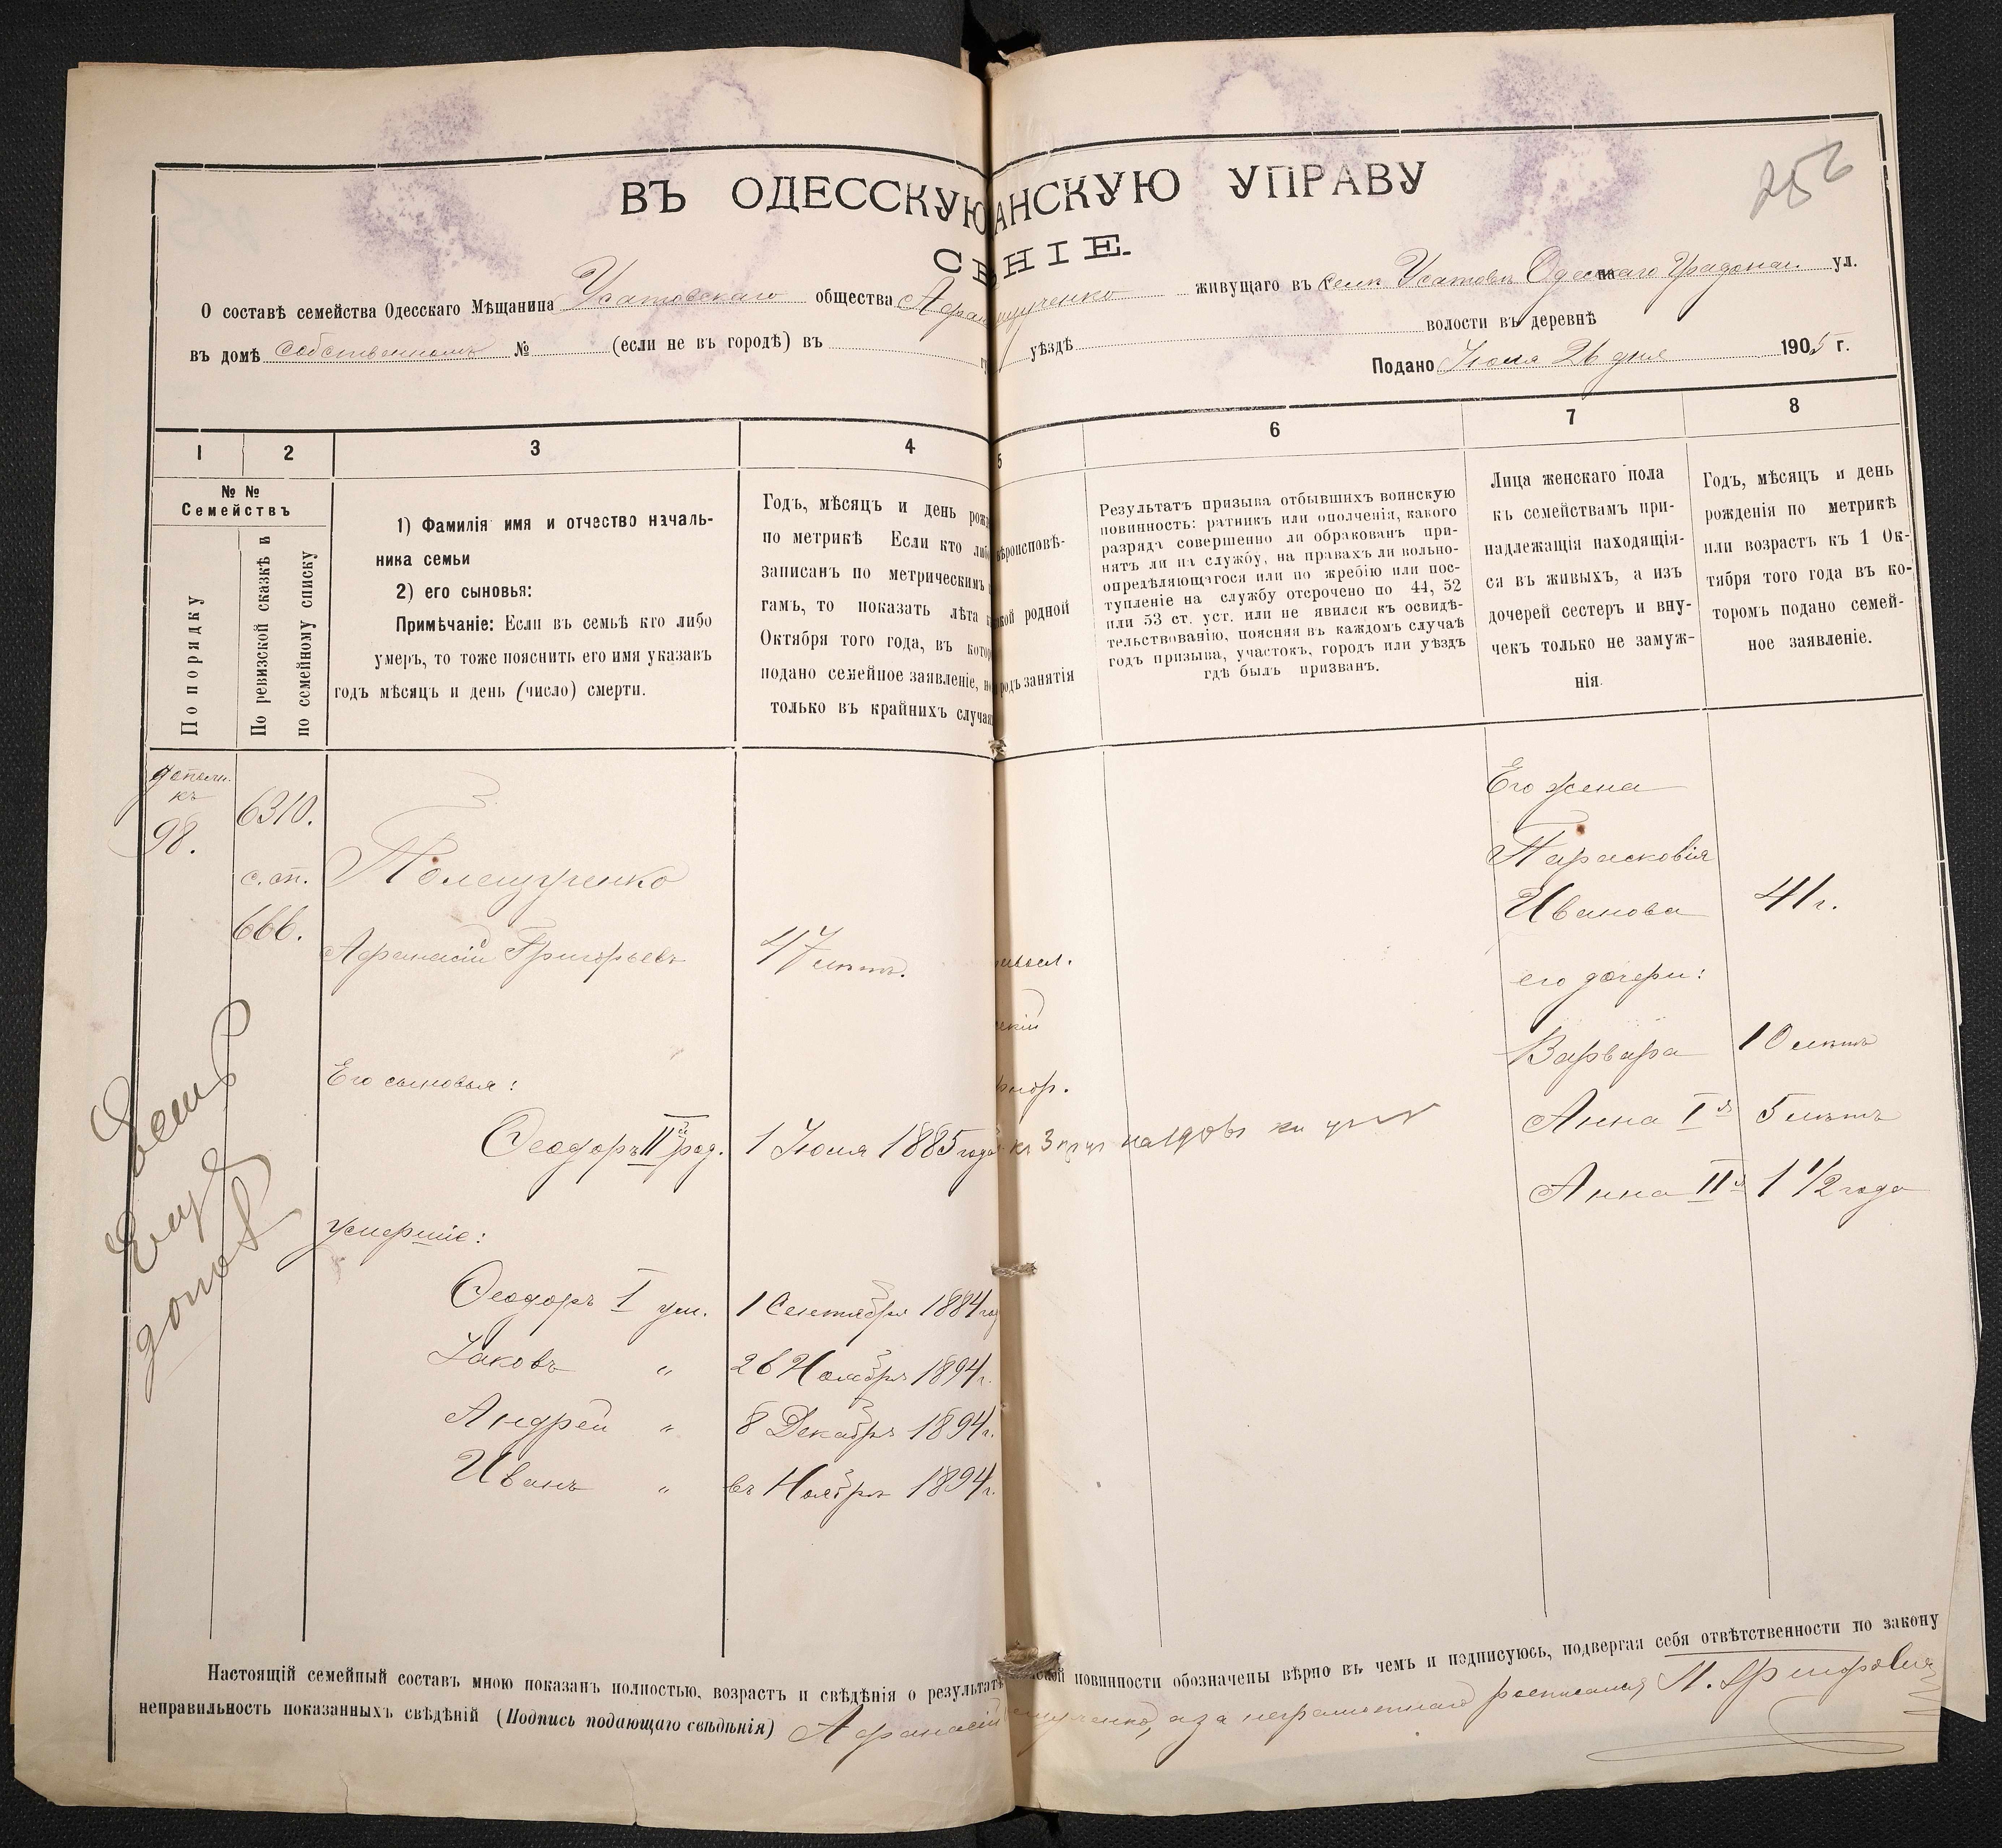 256
ВЪ ОДЕССКУЮ АНСКУЮ УПРАВУ
СВ НІЕ.
О составѣ семейства Одесскаго Мѣщанина Усатовскаго общества Афан щученко живущаго въ селѣ Усатовѣ Одесскаго Градонач. ул.
въ домѣ собственномъ № (если не въ городѣ) въ уѣздѣ волости въ деревнѣ
Подано Іюля 26 дня 1905 г.
1 2 3 4 5 6 7 8
№ №
Семействъ
По порядку
По ревизской сказкѣ и
по семейному списку
1) Фамилія имя и отчество началь-
ника семьи
2) его сыновья:
Примѣчаніе: Если въ семьѣ кто либо
умеръ, то тоже пояснить его имя указавъ
годъ мѣсяцъ и день (число) смерти.
Годъ, мѣсяцъ и день рож
по метрикѣ Если кто либо
записанъ по метрическимъ
гамъ, то показать лѣта
Октября того года, въ котор
подано семейное заявленіе, но
только въ крайнихъ случая
ѣроисповѣ-
кой родной
родъ занятія
Результатъ призыва отбывшихъ воинскую
повинность: ратникъ или ополченія, какого
разряда совершенно ли обракованъ при-
нятъ ли на службу, на правахъ ли вольно-
опредѣляющагося или по жребію или пос-
тупленіе на службу отсрочено по 44, 52
или 53 ст. уст. или не явился къ освидѣ-
тельствованію, поясняя въ каждомъ случаѣ
годъ призыва, участокъ, городъ или уѣздъ
гдѣ былъ призванъ.
Лица женскаго пола
къ семействамъ при-
надлежащія находящія-
ся въ живыхъ, а изъ
дочерей сестеръ и вну-
чекъ только не замуж-
нія.
Годъ, мѣсяцъ и день
рожденія по метрикѣ
или возрастъ къ 1 Ок-
тября того года въ ко-
торомъ подано семей-
ное заявленіе.
дополн.
къ
98.
6310.
с. сп.
666.
Полещученко
Афанасій Григорьевъ
47 лѣтъ.
Его сыновья:
Ѳеодоръ II й род. 1 Іюля 1885 года
Умершіе:
Ѳеодоръ I ум. 1 Сентября 1884 год
Іаковъ " 26 Ноября 1894 г.
Андрей " 8 Декабря 1894 г.
Иванъ " въ Ноябрѣ 1894 г.
Его жена
Парасковія
Иванова 41 г.
его дочери:
Варвара 10 лѣтъ
Анна I я 5 лѣтъ
Анна II я 1 1/2 года
Настоящій семейный составъ мною показанъ полностью, возрастъ и свѣдѣнія о результатѣ ской повинности обозначены вѣрно въ чемъ и подписуюсь, подвергая себя отвѣтственности по закону
неправильность показанныхъ свѣдѣній (Подпись подающаго свѣдѣнія) Афанасій щученко, а за неграмотнаго росписался